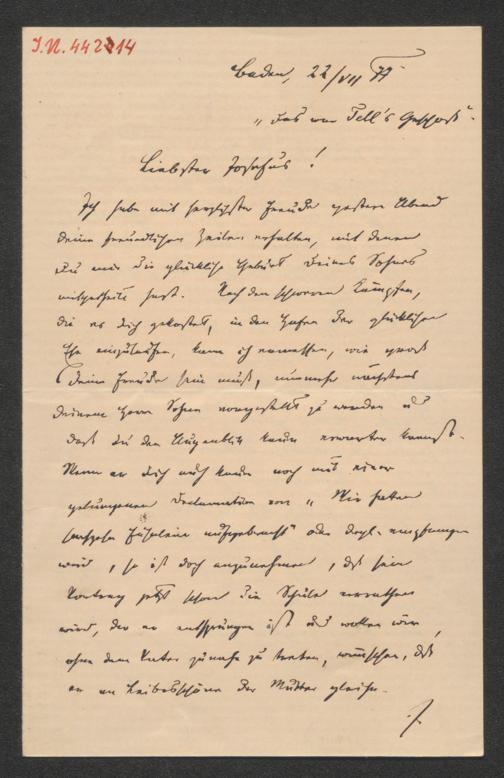 I.N. 442414
Baden, 22/VII 77
"Das war Tell's Geschoß".
Liebster Josephus!
Ich habe mit herzlichster Freude gestern Abend
Deine freundlichen Zeilen erhalten, mit denen
Du mir die glückliche Geburt Deines Sohnes
mitgetheilt hast. Nach den schweren Kämpfen,
die es Dich gekostet, in den Hafen der glücklichen
Ehe einzulaufen, kann ich ermessen, wie groß
Deine Freude sein muß, nunmehr nächstens
Deinem Herrn Sohne vorgestellt zu werden und
daß Du den Augenblick kaum erwarten kannst.
Wenn er Dich auch kaum noch mit einer
gelungenen Declamation von "Wir hatten
sechzehn Fähnlein aufgebracht" oder dergl. empfangen
wird, so ist doch anzunehmen, daß sein
Vortrag jetzt schon die Schule verrathen
wird, der er entsprungen ist und wollen wir,
ohne dem Vater zunahe zu treten, wünschen, daß
er an Leibesschöne der Mutter gleiche.